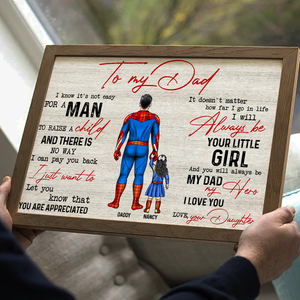 To my Dad
I know it's not easy
FOR A MAN
TO RAISE A child
AND THERE IS
NO WAY
I can pay you back
I just want to
Let you
know that
YOU ARE APPRECIATED
It doesn't matter
how far I go in life
I will
Always be
YOUR LITTLE
GIRL
And you will always be
MY DAD my Hero
I LOVE YOU
LOVE, your Daughter
DADDY
NANCY